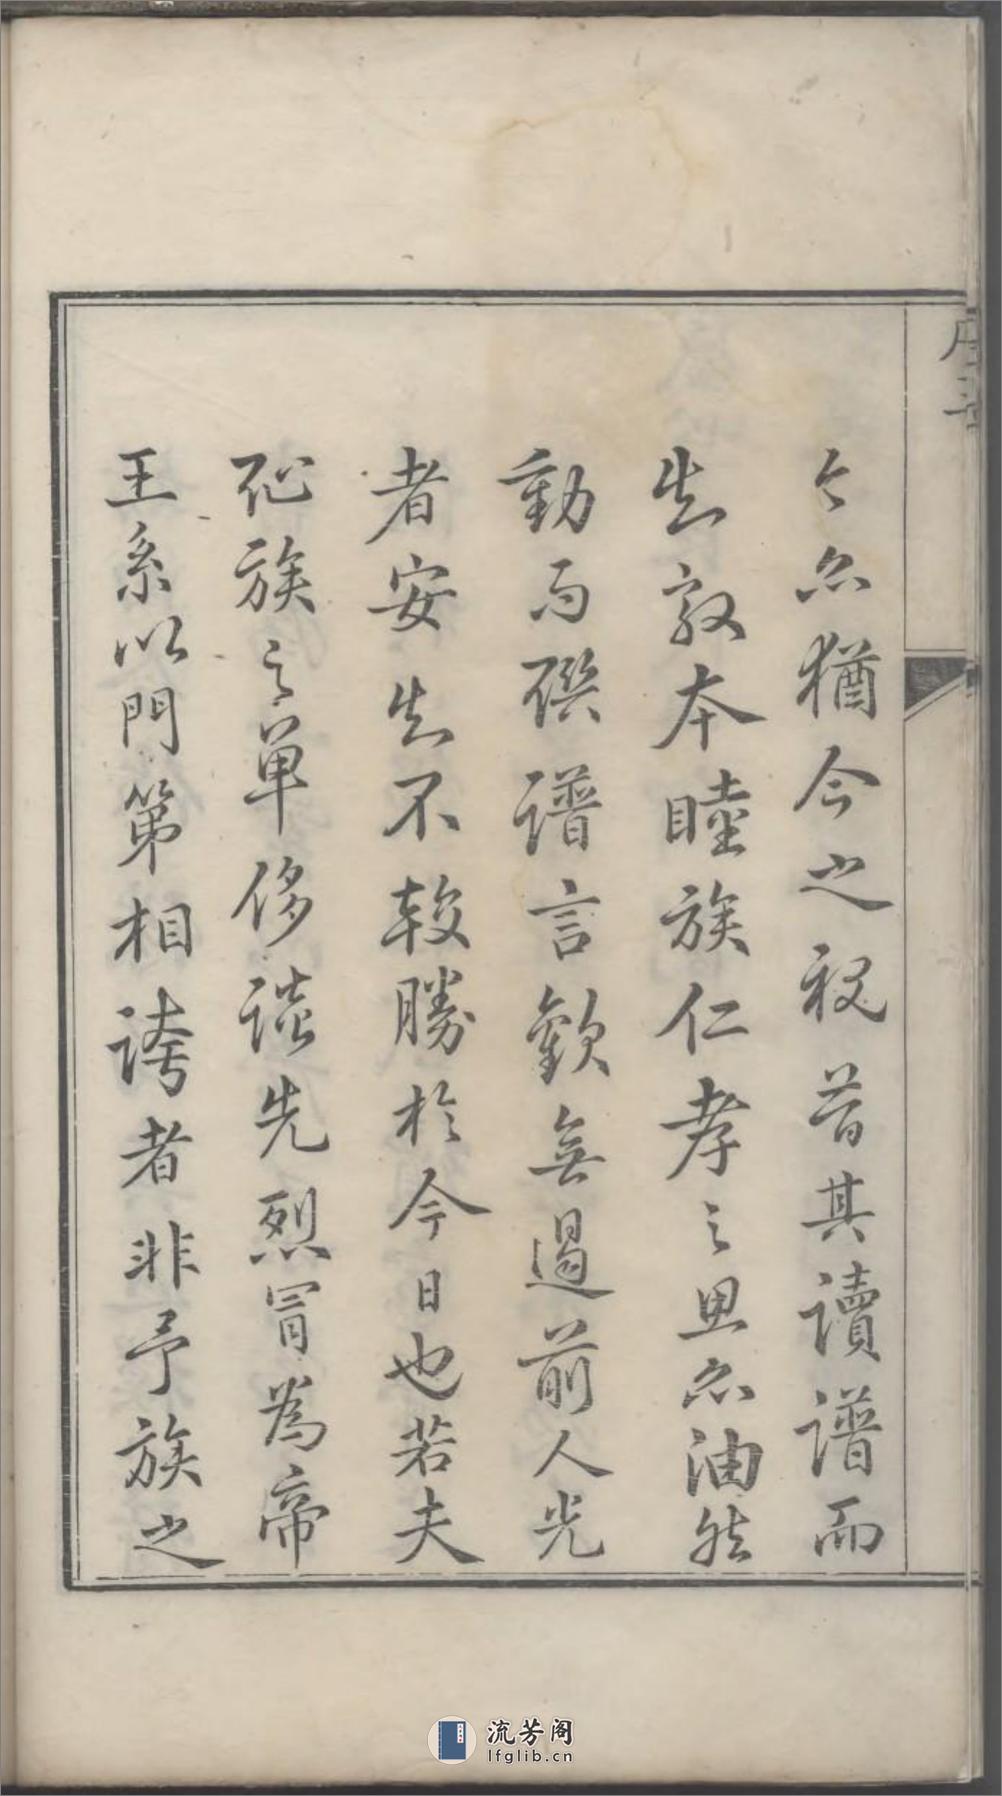 今亦猶今之視昔其讀譜而
知敦本睦族仁孝之思亦油然
動而撰譜言歡無遏前人光
者安知不較勝於今日也若夫
恥族之單侈談先烈冒為帝
王系以門第相誇者非予族之
流芳阁
lfglib.cn